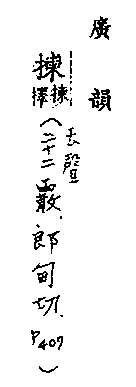 廣韻
揀 揀擇(去聲 三十二霰,郎甸切.P409)